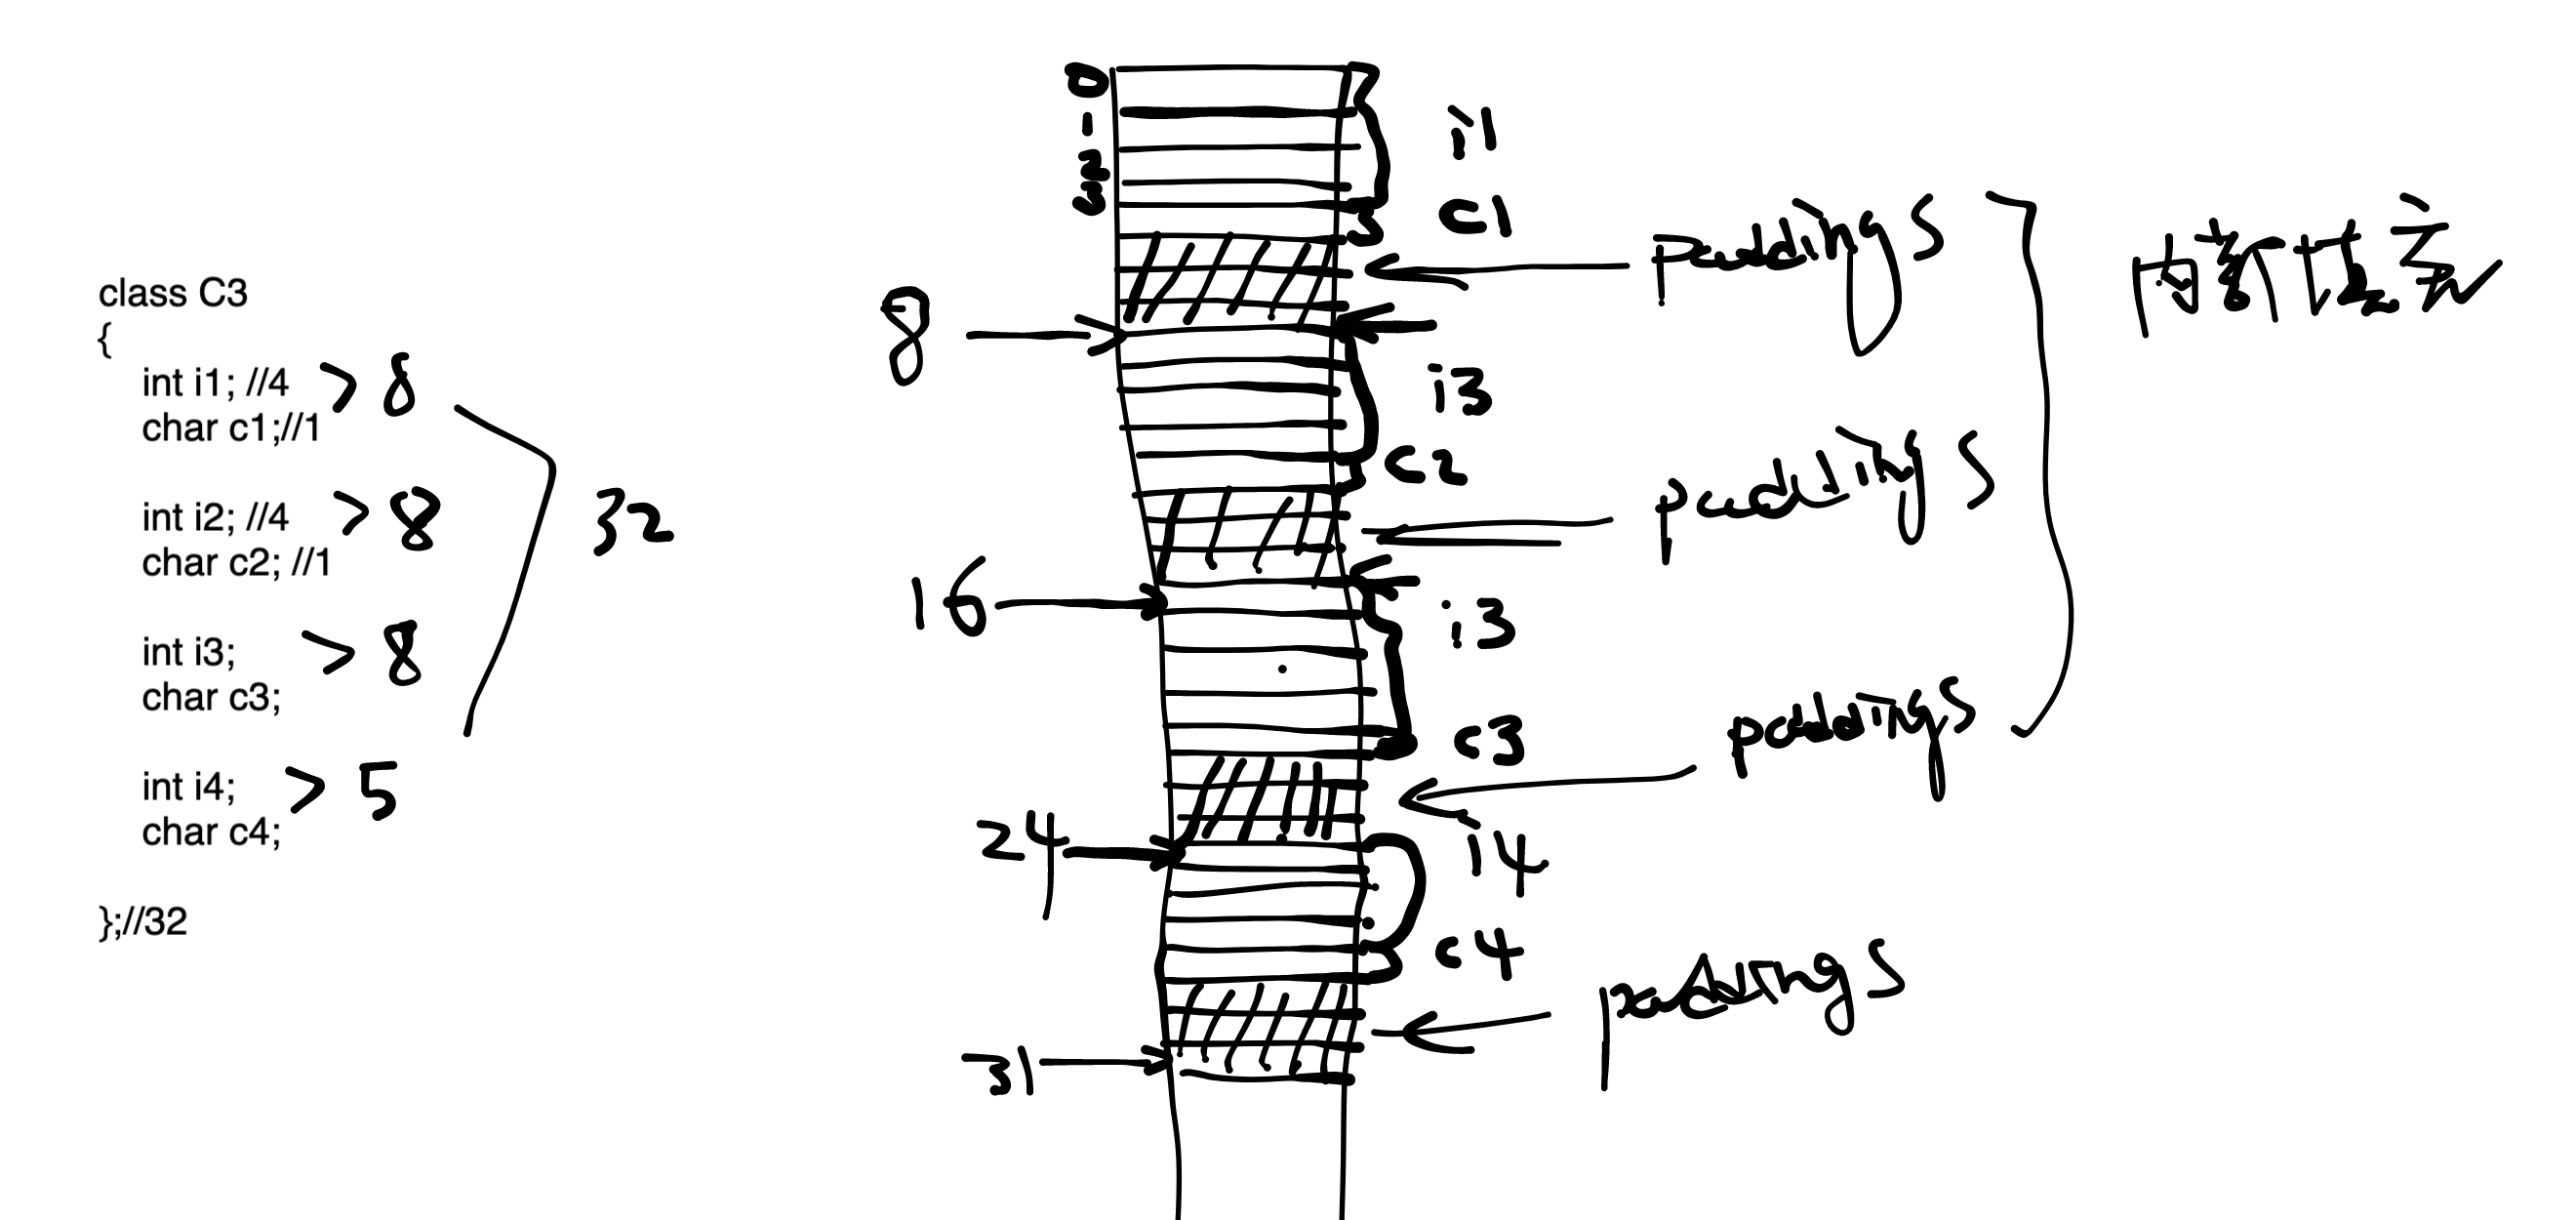 class C3
{
int i1; //4
char c1;//1
> 8
int i2; //4
char c2; //1
> 8
int i3;
char c3;
> 8
int i4;
char c4;
> 5
};//32
32
0
1
2
3
8
16
24
31
i1
c1
paddings
i3
c2
paddings
i3
c3
paddings
i4
c4
paddings
内